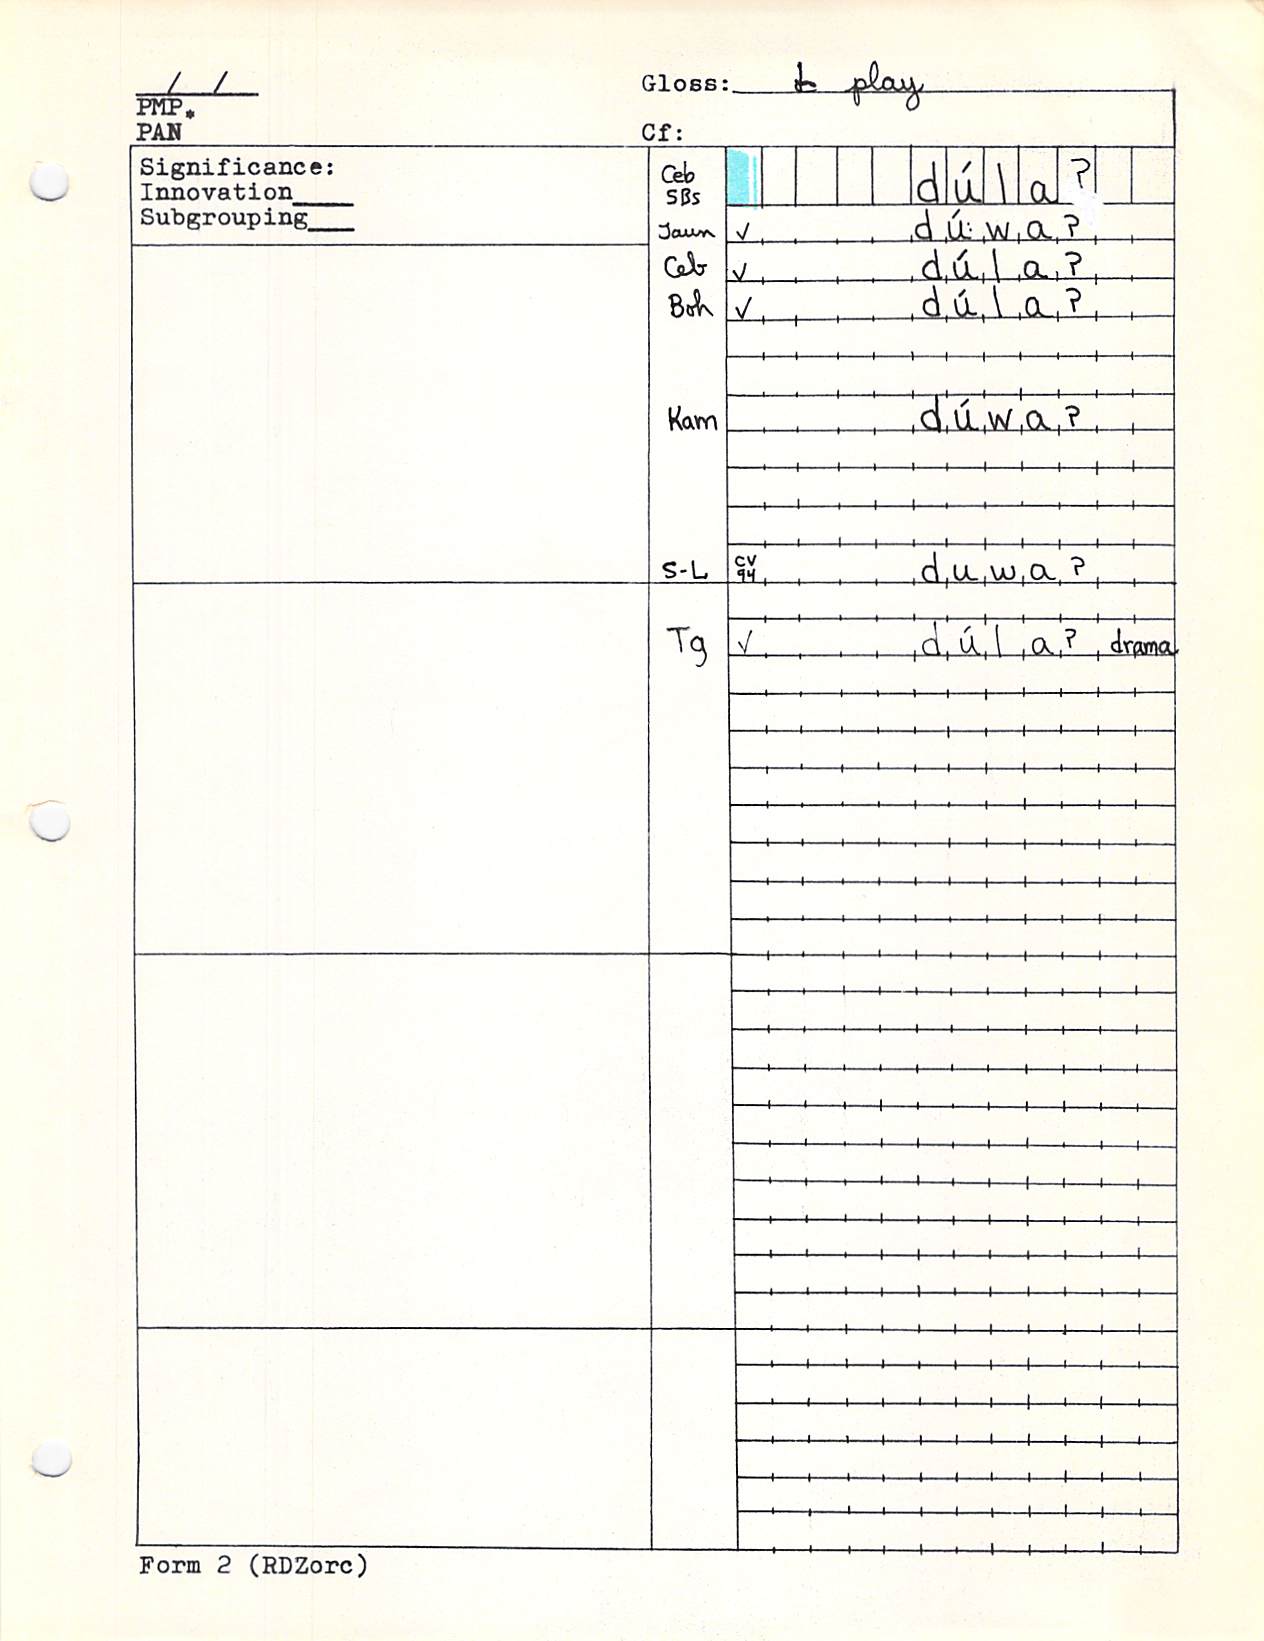 / /
Gloss: to play
PMP *
PAN
Cf:
Significance:
Innovation____
Subgrouping___
Ceb SBs dúlaʔ
Jaun ✓ dú:waʔ
Ceb ✓ dúlaʔ
Boh ✓ dúlaʔ
Kam dúwaʔ
S-L CV 94 duwaʔ
Tg ✓ dúlaʔ drama
Form 2 (RDZorc)